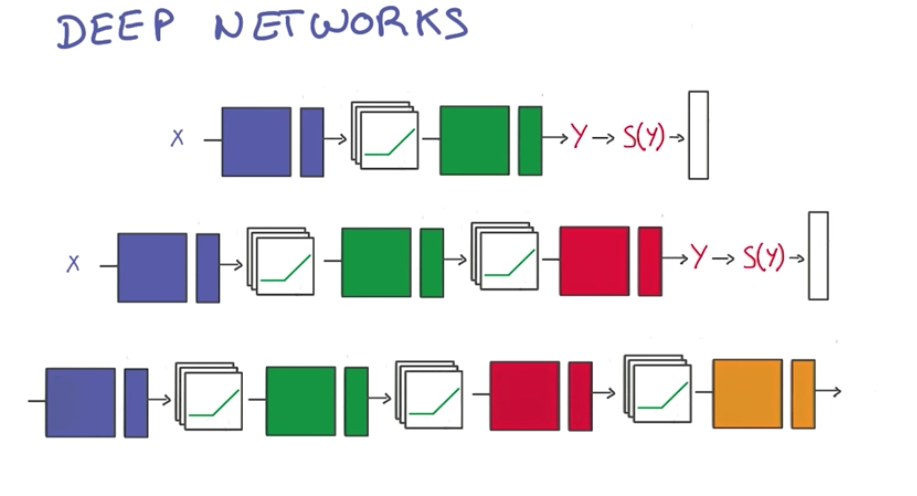 DEEP NETWORKS
X Y S(Y)
X Y S(Y)